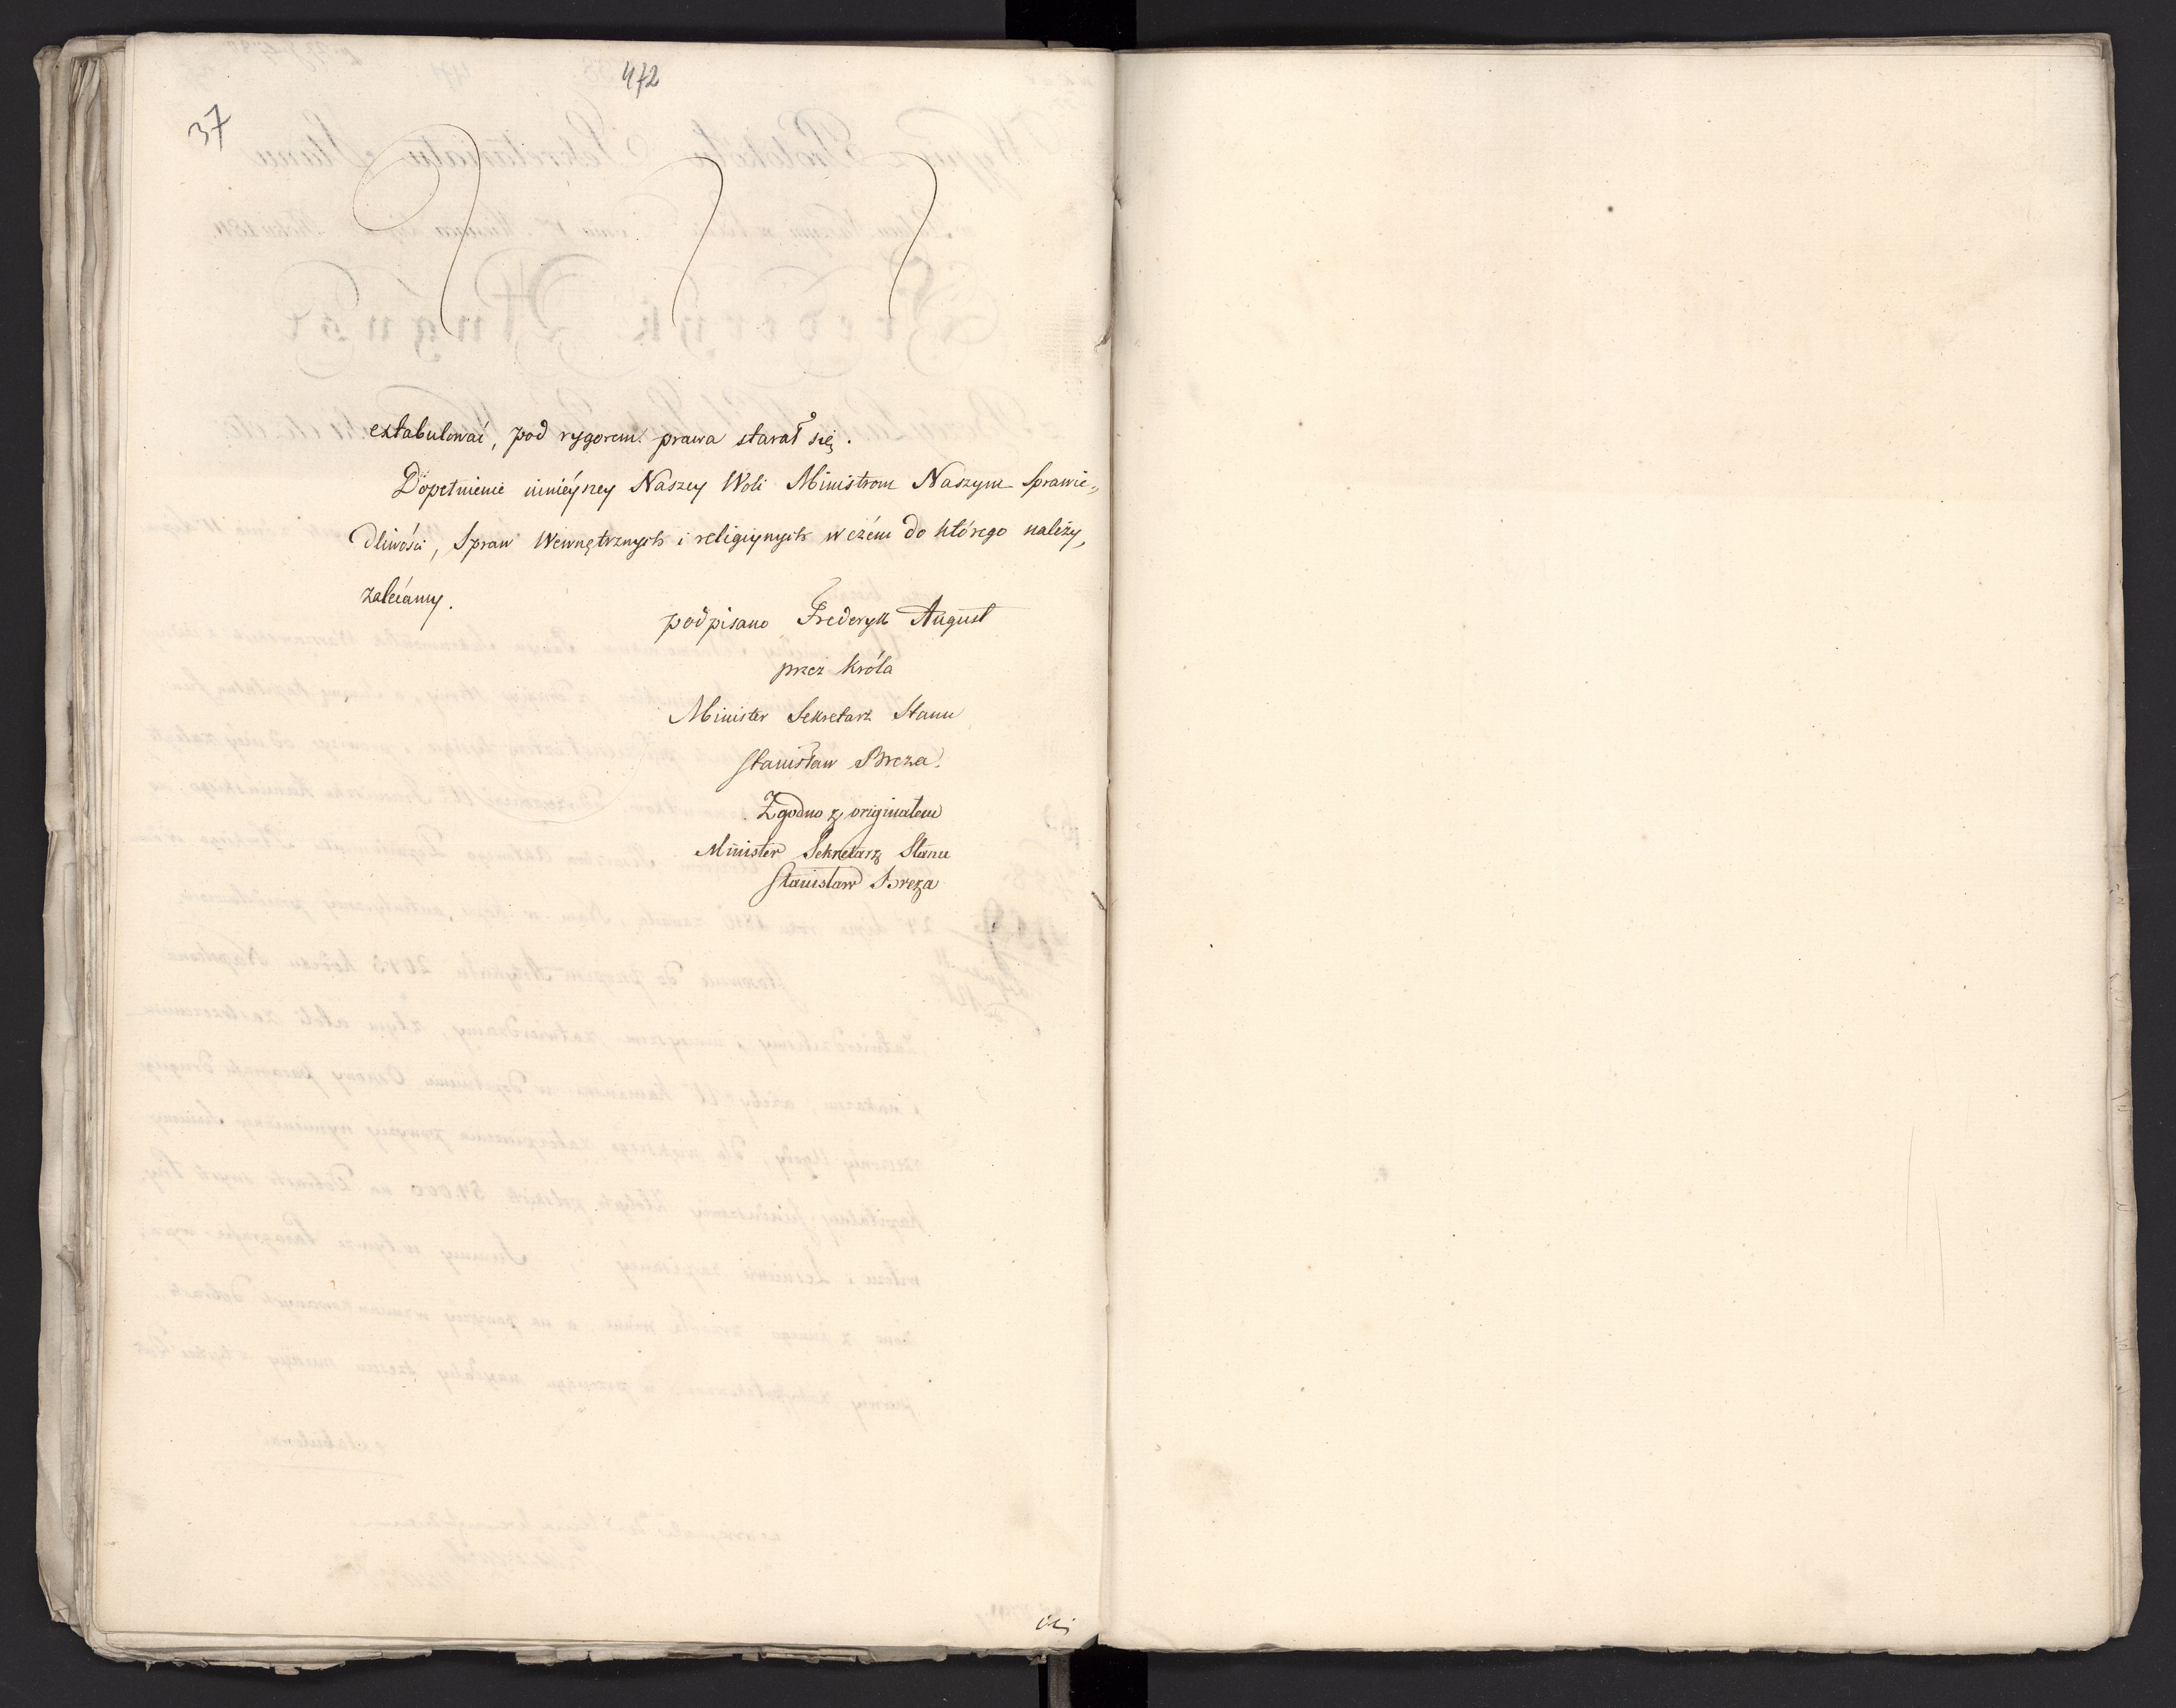 472
37
extabulować, pod rygorem prawa starał się.
Dopełnienie ninieyszey Naszey Woli Ministrom Naszym Sprawie„
dliwości, Spraw Wewnętrznych i religiynych w czém do którego należy,
zalecamy.
podpisano Frederyk August
przez Króla
Minister Sekretarz Stanu
Stanisław Breza.
Zgodno z originałem
Minister Sekretarz Stanu
Stanisław Breza